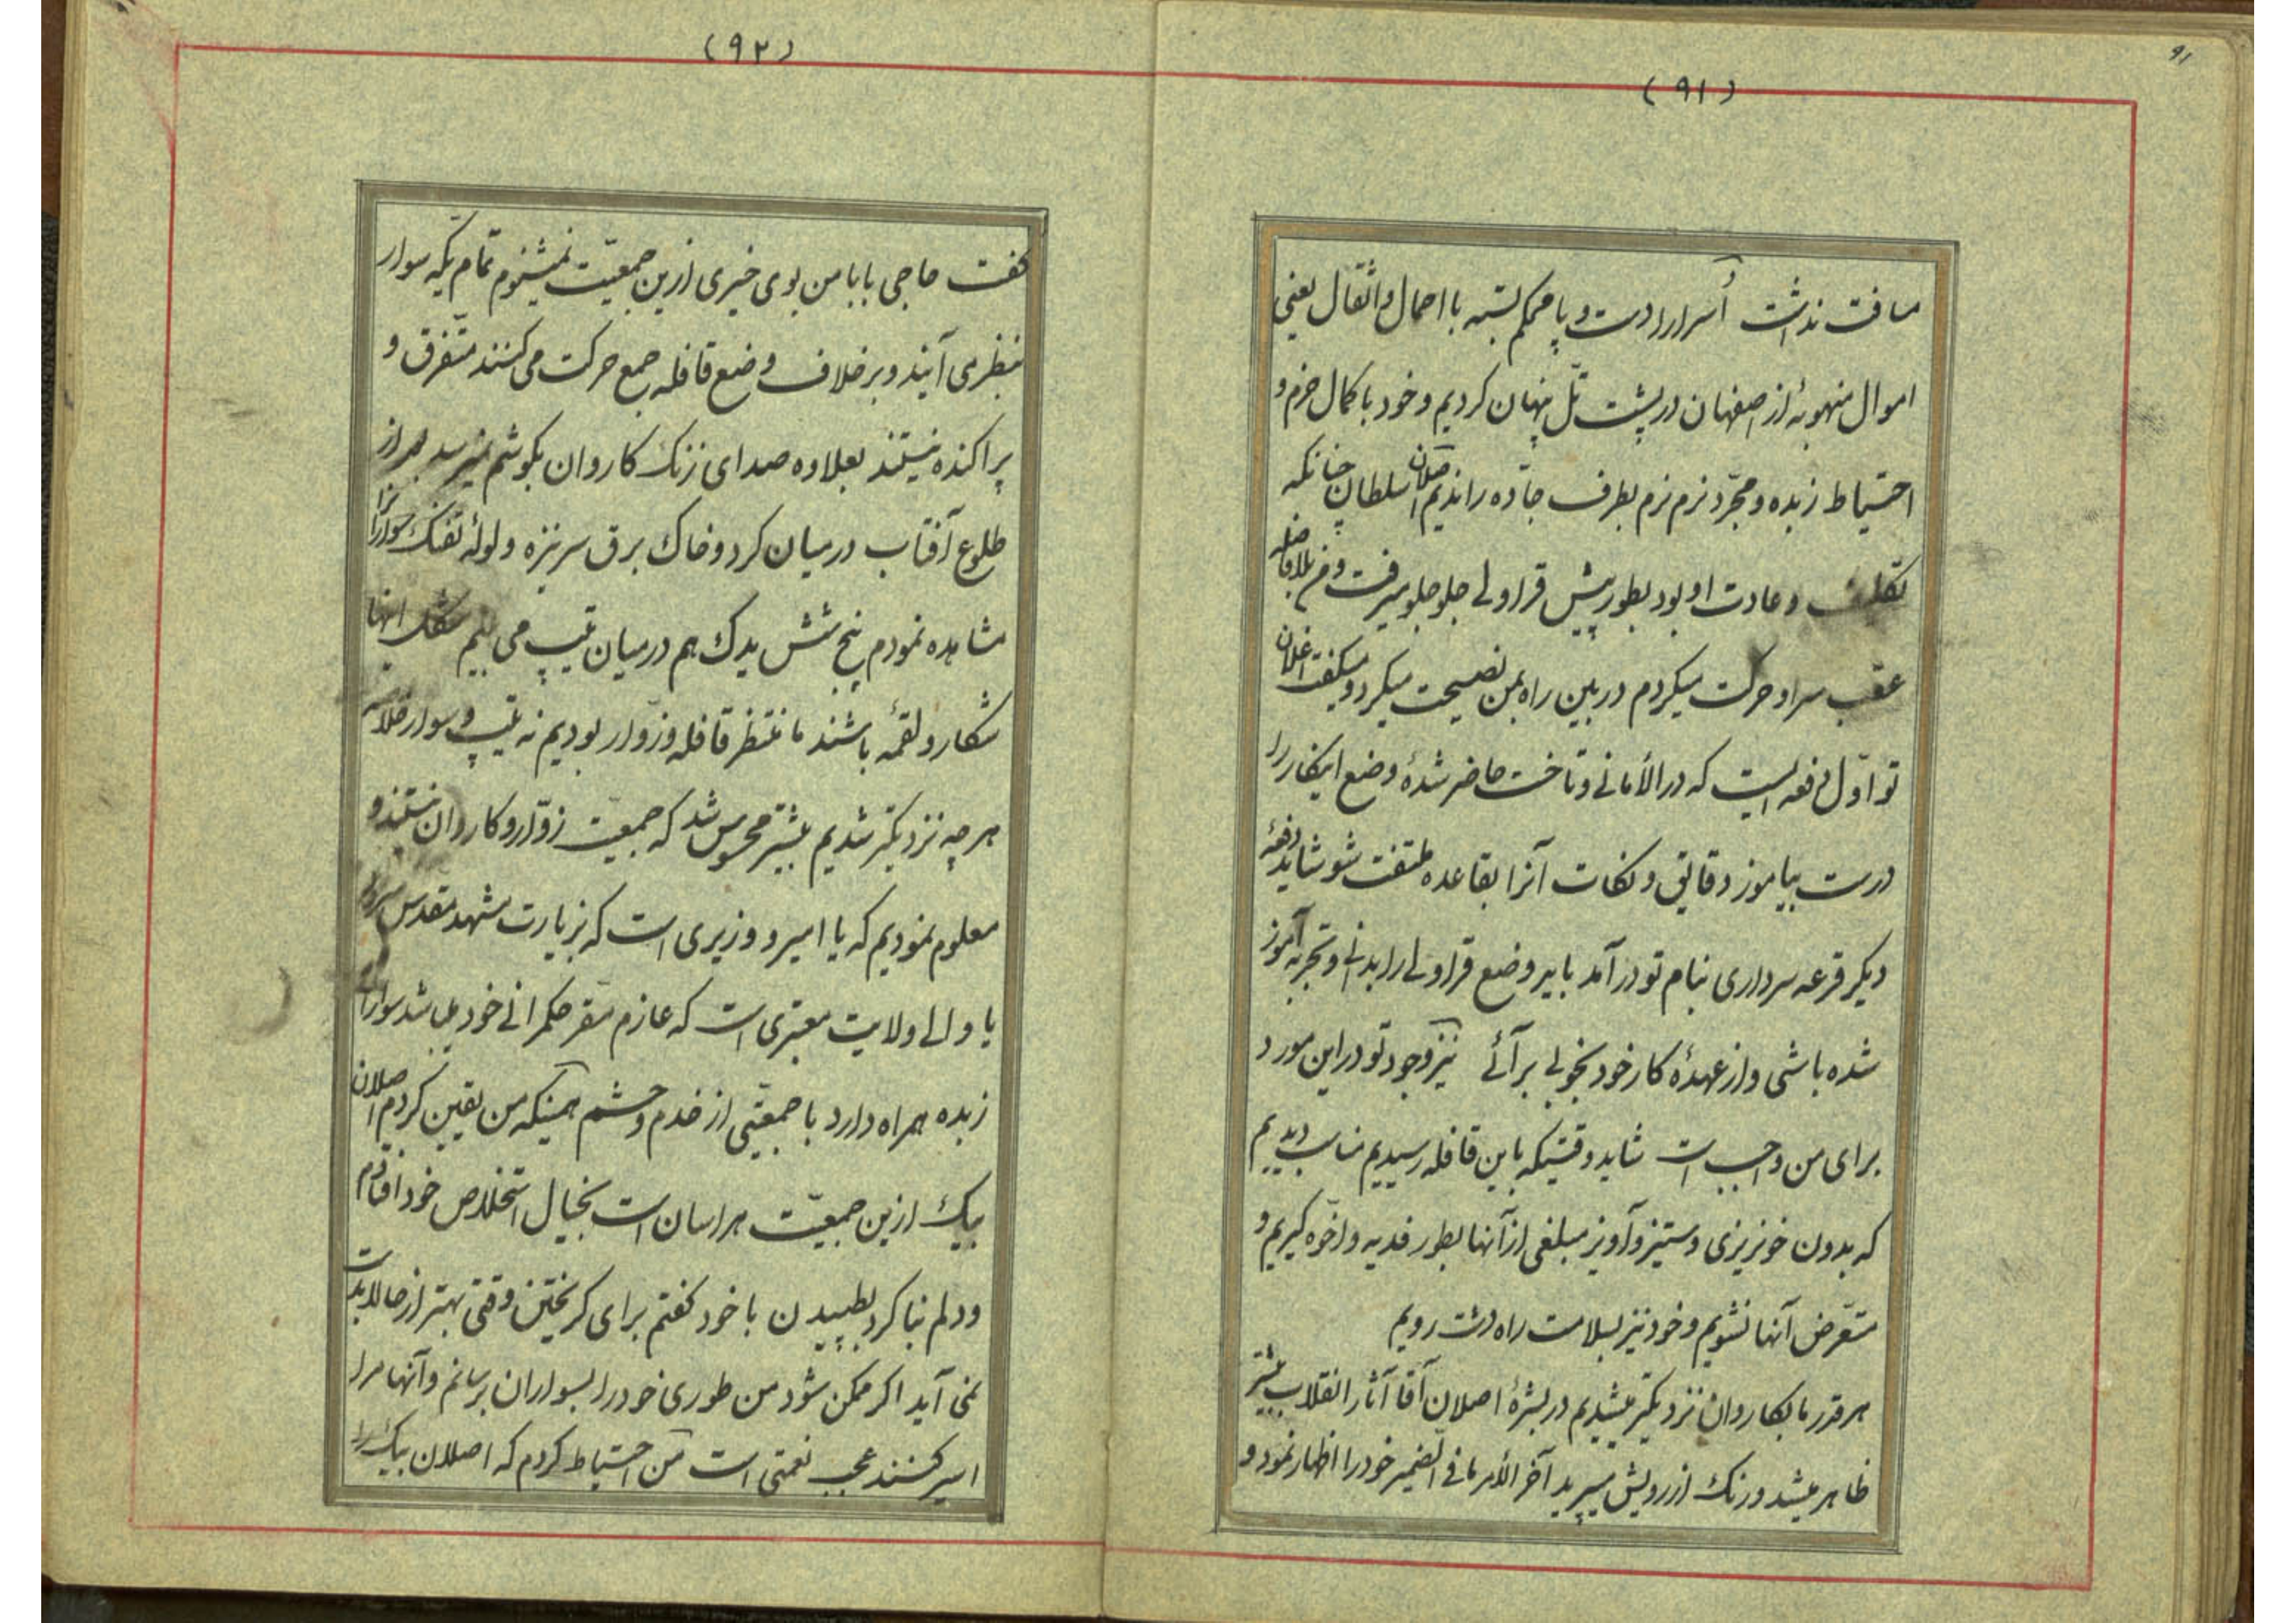 ۹۱
(۹۱)
مسافت نداشت اُسرا را دست و پا محکم بسته با احمال و اثقال یعنی
اموال منهوبهٔ از اصفهان در پشت تل پنهان کردیم و خود با کمال حزم و
احتیاط زبده و مجرّد نرم نرم بطرف جادّه راندیم اصلان سلطان چنانکه
تکلیف و عادت او بود بطور پیش قراولی جلو جلو میرفت و من بلافاصله
عقب سر او حرکت میکردم در بین راه بمن نصیحت میکرد و میگفت اغلان
تو اوّل دفعه ایست که در الأمانی و تاخت حاضر شدهٔ وضع اینکار را
درست بیاموز دقایق و نکات آنرا بقاعده ملتفت شو شاید دفعهٔ
دیگر قرعه سرداری بنام تو درآمد باید وضع قراولی را بدانی و تجربه آموز
شده باشی و از عهدهٔ کار خود بخوبی برآئی نیز وجود تو در این مورد
برای من واجب است شاید وقتیکه باین قافله رسیدیم مناسب دیدیم
که بدون خونریزی و ستیز و آویز مبلغی از آنها بطور فدیه و اخوّه گیریم و
متعرّض آنها نشویم و خود نیز بسلامت راه دشت رویم
هر قدر ما بکاروان نزدیکتر میشدیم در بشرهٔ اصلان آقا آثار انقلاب بیشتر
ظاهر میشد و رنگ از رویش میپرید آخر الأمر ما فی الضمیر خود را اظهار نمود و
(۹۲)
گفت حاجی بابا من بوی خیری ازین جمعیّت نمیشنوم تمام یکّه سوار
بنظر می آیند و بر خلاف وضع قافله جمع حرکت می کنند متفرق و
پراکنده نیستند بعلاوه صدای زنگ کاروان بگوشم نمیرسد بعد از
طلوع آفتاب در میان گرد و خاک برق سر نیزه و لولهٔ تفنگ سوارانرا
مشاهده نمودم پنج شش یدک هم در میان تیپ می بینم مشکل اینها
شکار و لقمهٔ باشند ما منتظر قافله و زوّار بودیم نه تیپ و سوار خلاصه
هر چه نزدیکتر شدیم بیشتر محسوس شد که جمعیت زوّار و کاروان نیستند و
معلوم نمودیم که یا امیر و وزیری است که بزیارت مشهد مقدس میرود
یا والی ولایت معتبری است که عازم مقر حکمرانی خود می باشد سواران
زبده همراه دارد با جمعیّتی از خدم و حشم همینکه من یقین کردم اصلان
بیک ازین جمعیّت هراسان است بخیال استخلاص خود افتادم
و دلم بنا کرد بطپیدن با خود گفتم برای گریختن وقتی بهتر از حالا بدست
نمی آید اگر ممکن شود من طوری خود را بسواران برسانم و آنها مرا
اسیر کنند عجب نعمتی است من احتیاط کردم که اصلان بیک را